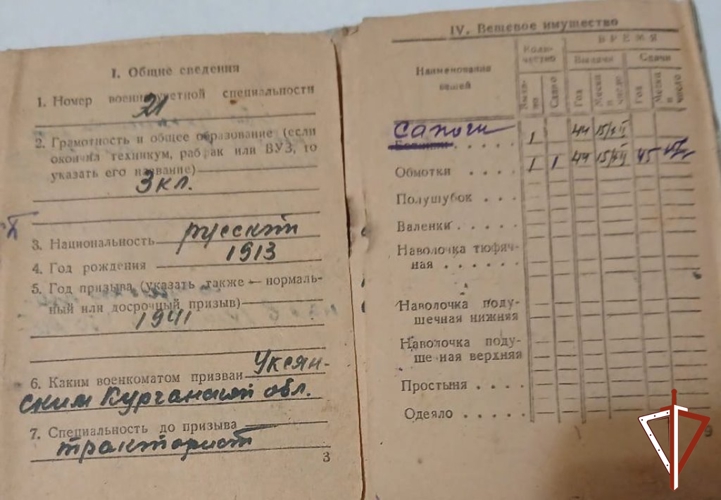 I. Общие сведения
1. Номер военно-учетной специальности
21
2. Грамотность и общее образование (если
окончил техникум, рабфак или ВУЗ, то
указать его название)
3 кл.
3. Национальность русский
4. Год рождения 1913
5. Год призыва (указать также — нормаль-
ный или досрочный призыв)
1941
6. Каким военкоматом призван Уксян-
ским Курганской обл.
7. Специальность до призыва
тракторист
3
IV. Вещевое имущество
Наименования
вещей
Коли-
чество
ВРЕМЯ
Выдачи
Сдачи
Сдано
Год
Месяц
и
число
Год
Месяц
и
число
сапоги 1 44
Обмотки . . . 1 1 44 45
Полушубок . .
Валенки . . .
Наволочка тюфяч-
ная . . . . .
Наволочка поду-
шечная нижняя
Наволочка поду-
шечная верхняя
Простыня . . . .
Одеяло . . . . .
9